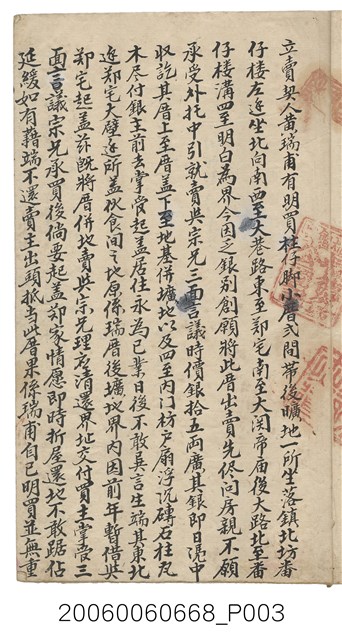 立賣契人黄瑞甫有明買柱仔脚小厝弍間帶後曠地一所坐落鎮北坊番
仔樓左邊坐北向南西至大巷路東至鄭宅南至大関帝庙後大路北至番
仔楼溝四至明白為界今因乏銀别創願將此厝出賣先侭问房親不願
承受外托中引就賣與宗兄三面言議時價銀拾五両廣其銀即日凴中
收訖其厝上至厝盖下至地基併壙地以及四至内门枋户扇浮沉磚石柱瓦
木尽付銀主前去掌管起盖居住永為己業日後不敢異言生端其東北
邊鄭宅大壁邊所盖伙食间之地原係瑞厝後壙地界内因前年暫借與
郑宅起盖兹既將厝併地賣與宗兄理应清還界址交付買主掌管三
面言議宗兄承買後倘要起盖郑家情愿即時折屋還地不敢踞佔
延緩如有藉端不還賣主出頭抵当此厝果係瑞甫自己明買並無重
20060060668_P003